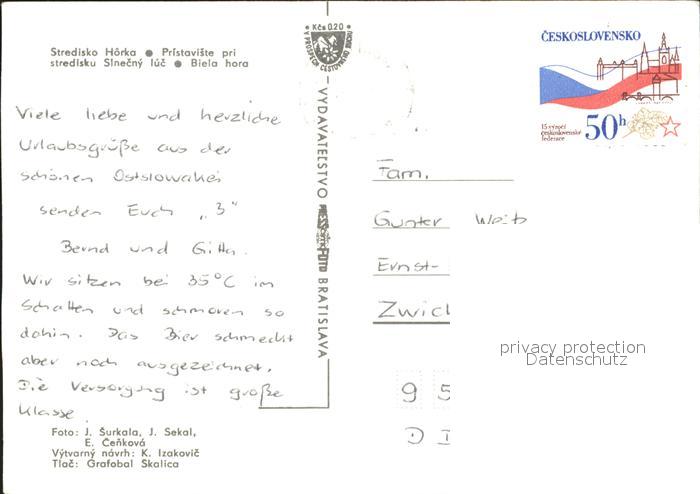 Stredisko Hôrka ● Prístavište pri
stredisku Slnečný lúč ● Biela hora
Kčs 0,20
V PROSPECH CESTOVNÉHO RUCHU
ČESKOSLOVENSKO
15. výročí
československé
federace
50h
Viele liebe und herzliche
Urlaubsgrüße aus der
schönen Ostslowakei
senden Euch „3"
Bernd und Gitta.
Wir sitzen bei 35°C im
Schatten und schmoren so
dahin. Das Bier schmeckt
aber noch ausgezeichnet.
Die Versorgung ist große
Klasse.
VYDAVATEĽSTVO PRESSFOTO BRATISLAVA
Fam.
Gunter
Ernst-
Zwick
95
privacy protection
Datenschutz
Foto: J. Šurkala, J. Sekal,
E. Čeňková
Výtvarný návrh: K. Izakovič
Tlač: Grafobal Skalica